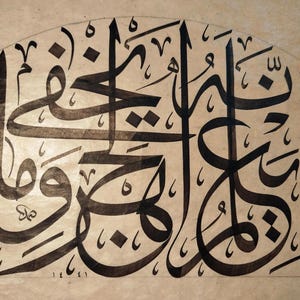 إنه يعلم الجهر وما يخفى
١٤٤١